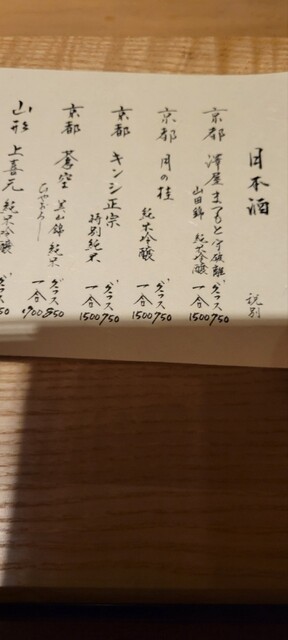 日本酒
税別
京都 澤屋まつもと 守破離
山田錦 純米吟醸
グラス 750
一合 1500
京都 月の桂
純米吟醸
グラス 750
一合 1500
京都 キンシ正宗
特別純米
グラス 750
一合 1500
京都 蒼空 美山錦 純米
ひやおろし
グラス 850
一合 1700
山形 上喜元 純米吟醸